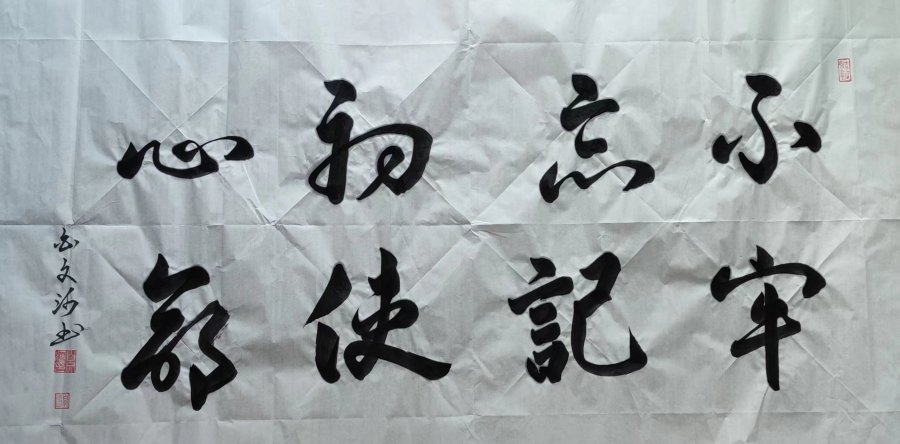 不忘初心
牢記使命
白文沙书